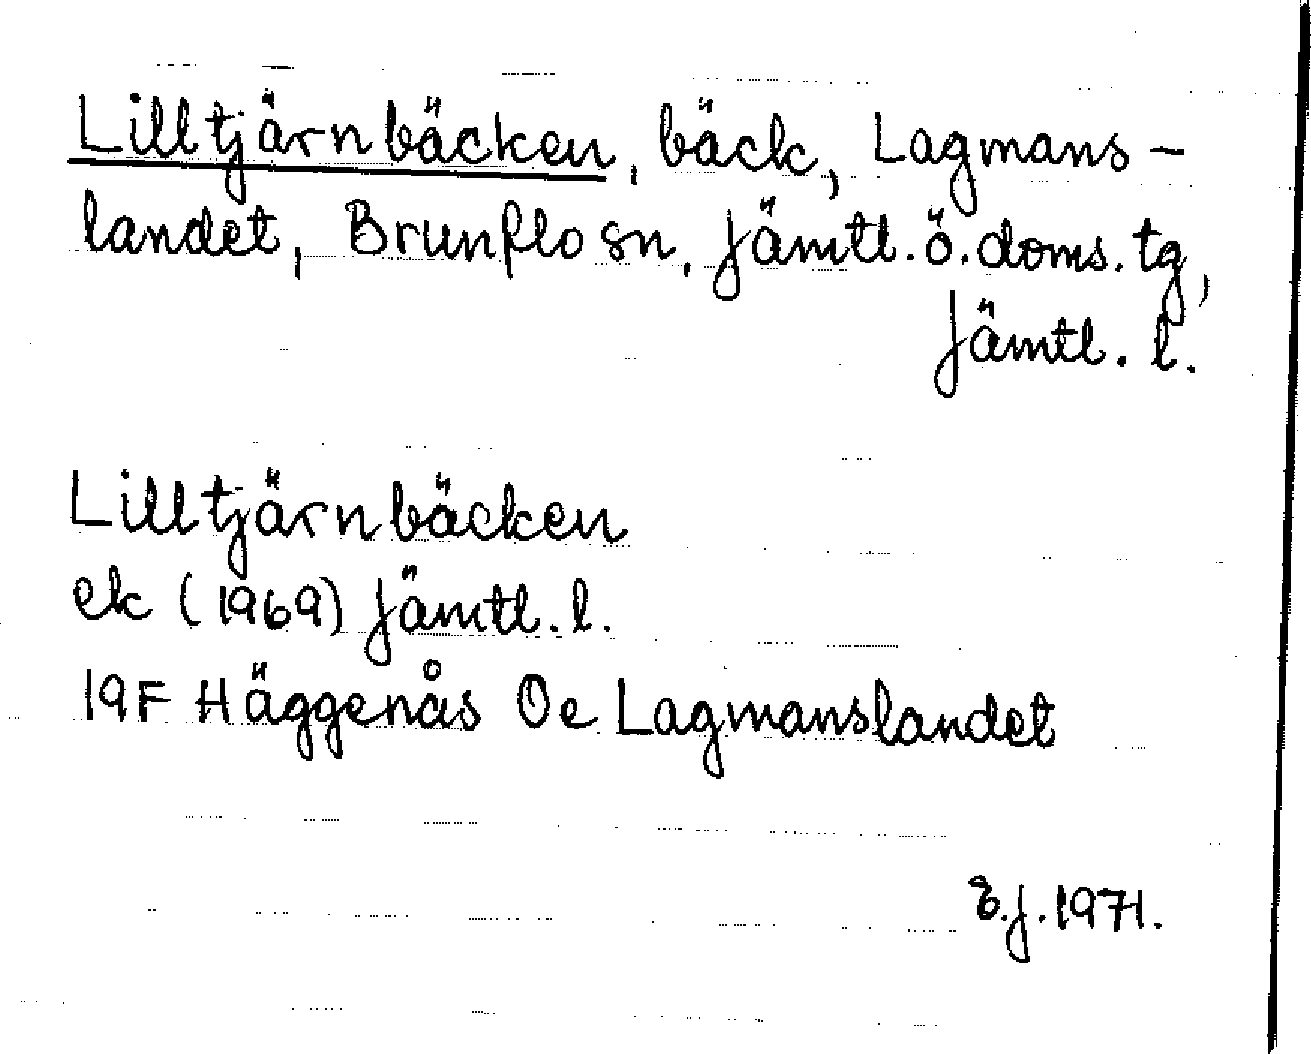 Lilltjärnbäcken, bäck, Lagmans-
landet, Brunflo sn, Jämtl. ö. doms. tg,
Jämtl. l.
Lilltjärnbäcken
ek (1969) Jämtl. l.
19F Häggenås Oe Lagmanslandet
E.J. 1971.